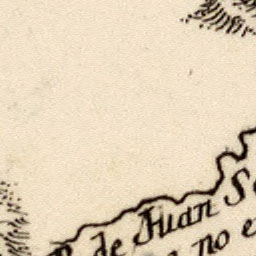 R. de Juan S
no e